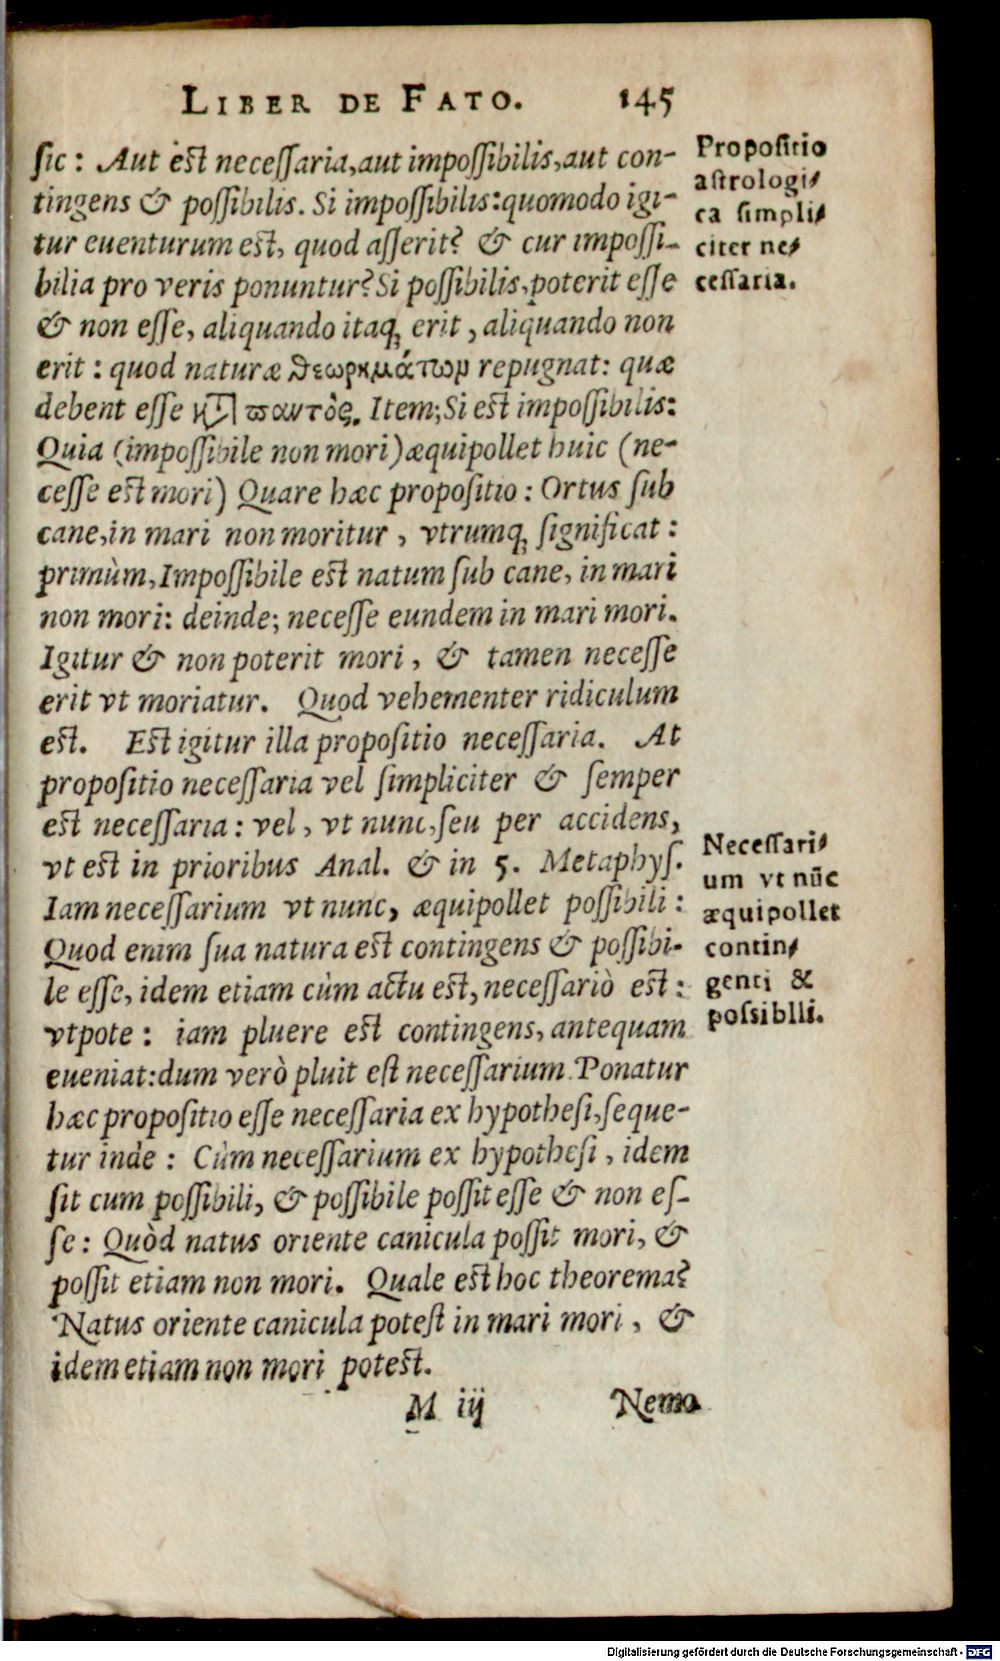 LIBER DE FATO. 145
sic: Aut est necessaria, aut impossibilis, aut con-
tingens & possibilis. Si impossibilis: quomodo igi-
tur euenturum est, quod asserit? & cur impossi-
bilia pro veris ponuntur? Si possibilis, poterit esse
& non esse, aliquando itaq; erit, aliquando non
erit: quod naturæ θεωρημάτωμ repugnat: quæ
debent esse κ̀ϡ παντὸς. Item; Si est impossibilis:
Quia (impossibile non mori) æquipollet huic (ne-
cesse est mori) Quare hæc propositio: Ortus sub
cane, in mari non moritur, vtrumq; significat:
primùm, Impossibile est natum sub cane, in mari
non mori: deinde; necesse eundem in mari mori.
Igitur & non poterit mori, & tamen necesse
erit vt moriatur. Quod vehementer ridiculum
est. Est igitur illa propositio necessaria. At
propositio necessaria vel simpliciter & semper
est necessaria: vel, vt nunc, seu per accidens,
vt est in prioribus Anal. & in 5. Metaphys.
Iam necessarium vt nunc, æquipollet possibili:
Quod enim sua natura est contingens & possibi-
le esse, idem etiam cùm actu est, necessariò est:
vtpote: iam pluere est contingens, antequam
eueniat: dum verò pluit est necessarium. Ponatur
hæc propositio esse necessaria ex hypothesi, seque-
tur inde: Cùm necessarium ex hypothesi, idem
sit cum possibili, & possibile possit esse & non es-
se: Quòd natus oriente canicula possit mori, &
possit etiam non mori. Quale est hoc theorema?
Natus oriente canicula potest in mari mori, &
idem etiam non mori potest.
M iij Nemo
Propositio
astrologi-
ca simpli-
citer ne-
cessaria.
Necessari-
um vt nūc
æquipollet
contin-
genti &
possiblli.
Digitalisierung gefördert durch die Deutsche Forschungsgemeinschaft - DFG